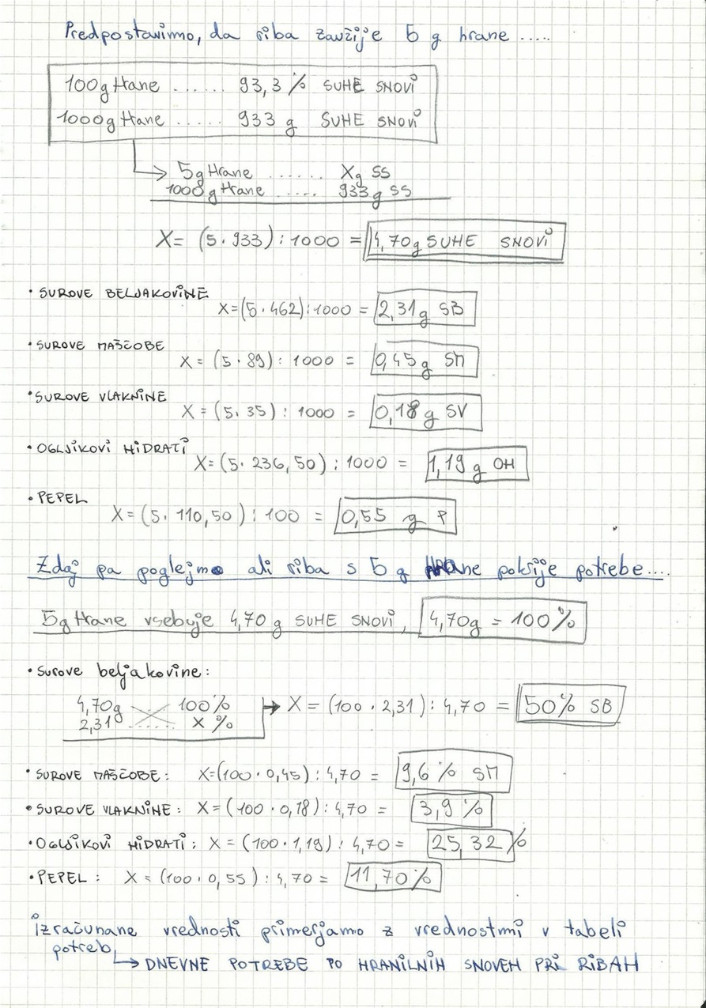 Predpostavimo, da riba zaužije 5 g hrane .....
100g Hrane ...... 93,3 % SUHE SNOVI
1000g Hrane ..... 933 g SUHE SNOVI
5g Hrane ...... Xg SS
1000g Hrane ..... 933g SS
X = (5 · 933) : 1000 = 4,70g SUHE SNOVI
• SUROVE BELJAKOVINE
X=(5 · 462) : 1000 = 2,31g SB
• SUROVE MAŠČOBE
X = (5 · 89) : 1000 = 0,45g SM
• SUROVE VLAKNINE
X = (5 · 35) : 1000 = 0,18 g SV
• OGLJIKOVI HIDRATI
X=(5 · 236,50) : 1000 = 1,19 g OH
• PEPEL
X = (5 · 110,50) : 100 = 0,55 g P
Zdaj pa poglejmo ali riba s 5 g Hrane pokrije potrebe....
5g Hrane vsebuje 4,70 g SUHE SNOVI, 4,70g = 100%
• Surove beljakovine:
4,70g 100%
2,31 ..... X %
X = (100 · 2,31) : 4,70 = 50% SB
• SUROVE MAŠČOBE: X=(100 · 0,45) : 4,70 = 9,6 % SM
• SUROVE VLAKNINE: X = (100 · 0,18) : 4,70 = 3,9 %
• OGLJIKOVI HIDRATI: X = (100 · 1,19) : 4,70 = 25,32 %
• PEPEL: X = (100 · 0,55) : 4,70 = 11,70%
izračunane vrednosti primerjamo z vrednostmi v tabeli
potreb
DNEVNE POTREBE PO HRANILNIH SNOVEH PRI RIBAH